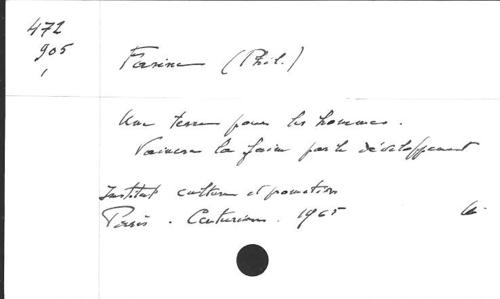 472
905
1
Farine (Phil.)
Une terre pour les hommes.
Vaincre la faim par le développement
Institut culture et promotion
Paris. Centurion. 1965